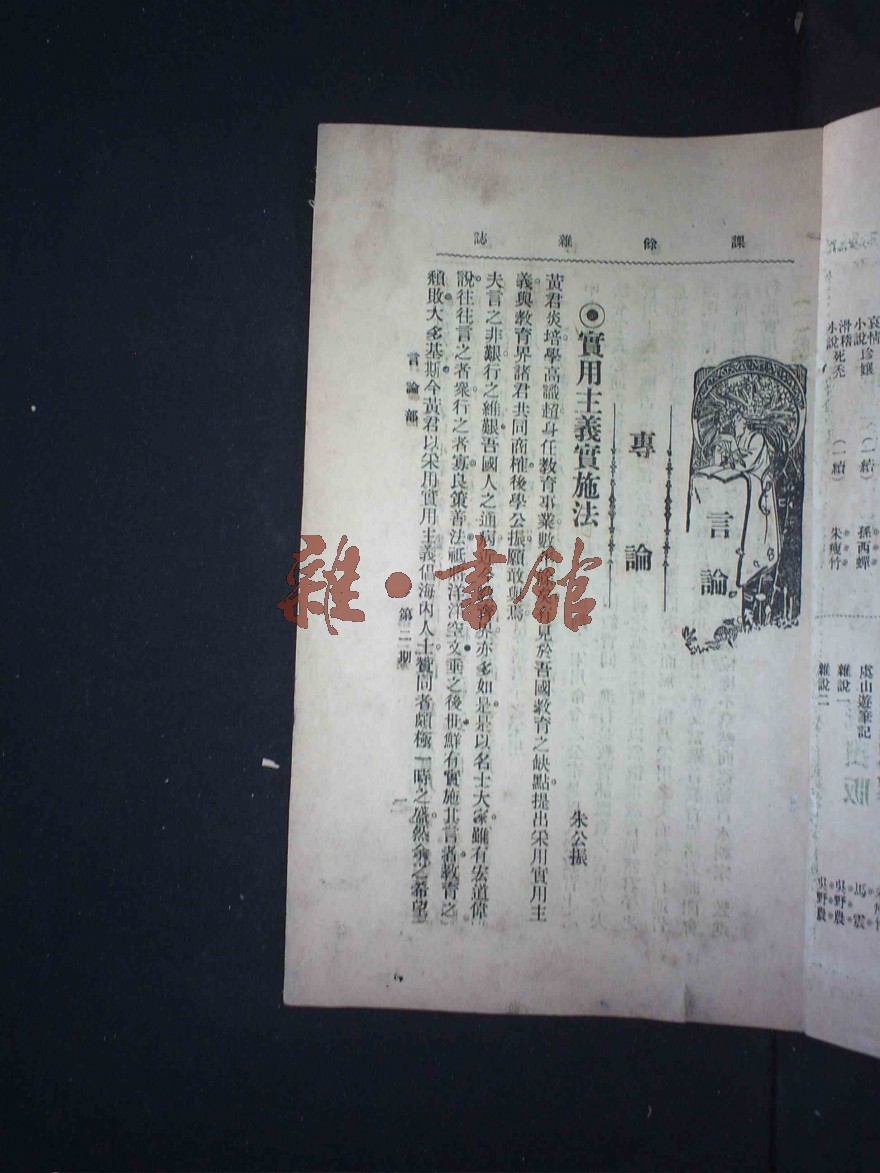 課餘雜誌
言論
專論
◉實用主義實施法
朱公振
黃君炎培學高識超身任教育事業數見於吾國教育之缺點提出采用實用主
義與教育界諸君共同商榷後學公振願敢與焉
夫言之非艱行之維艱吾國人之通病亦多如是是以名士大家雖有宏道偉
說往往言之者衆行之者寡良策善法祇將洋洋空文垂之後世鮮有實施其言者教育之
頹敗大多基斯今黃君以采用實用主義倡海內人士贊同者頗極一時之盛然余之希望
言論部
第二期
哀情小說珍孃
(一續)
孫西蟬
滑稽小說死禿
(一續)
朱瘦竹
虞山遊筆記
馬震
雜說一
吳野農
雜說二
吳野農
雜·書館